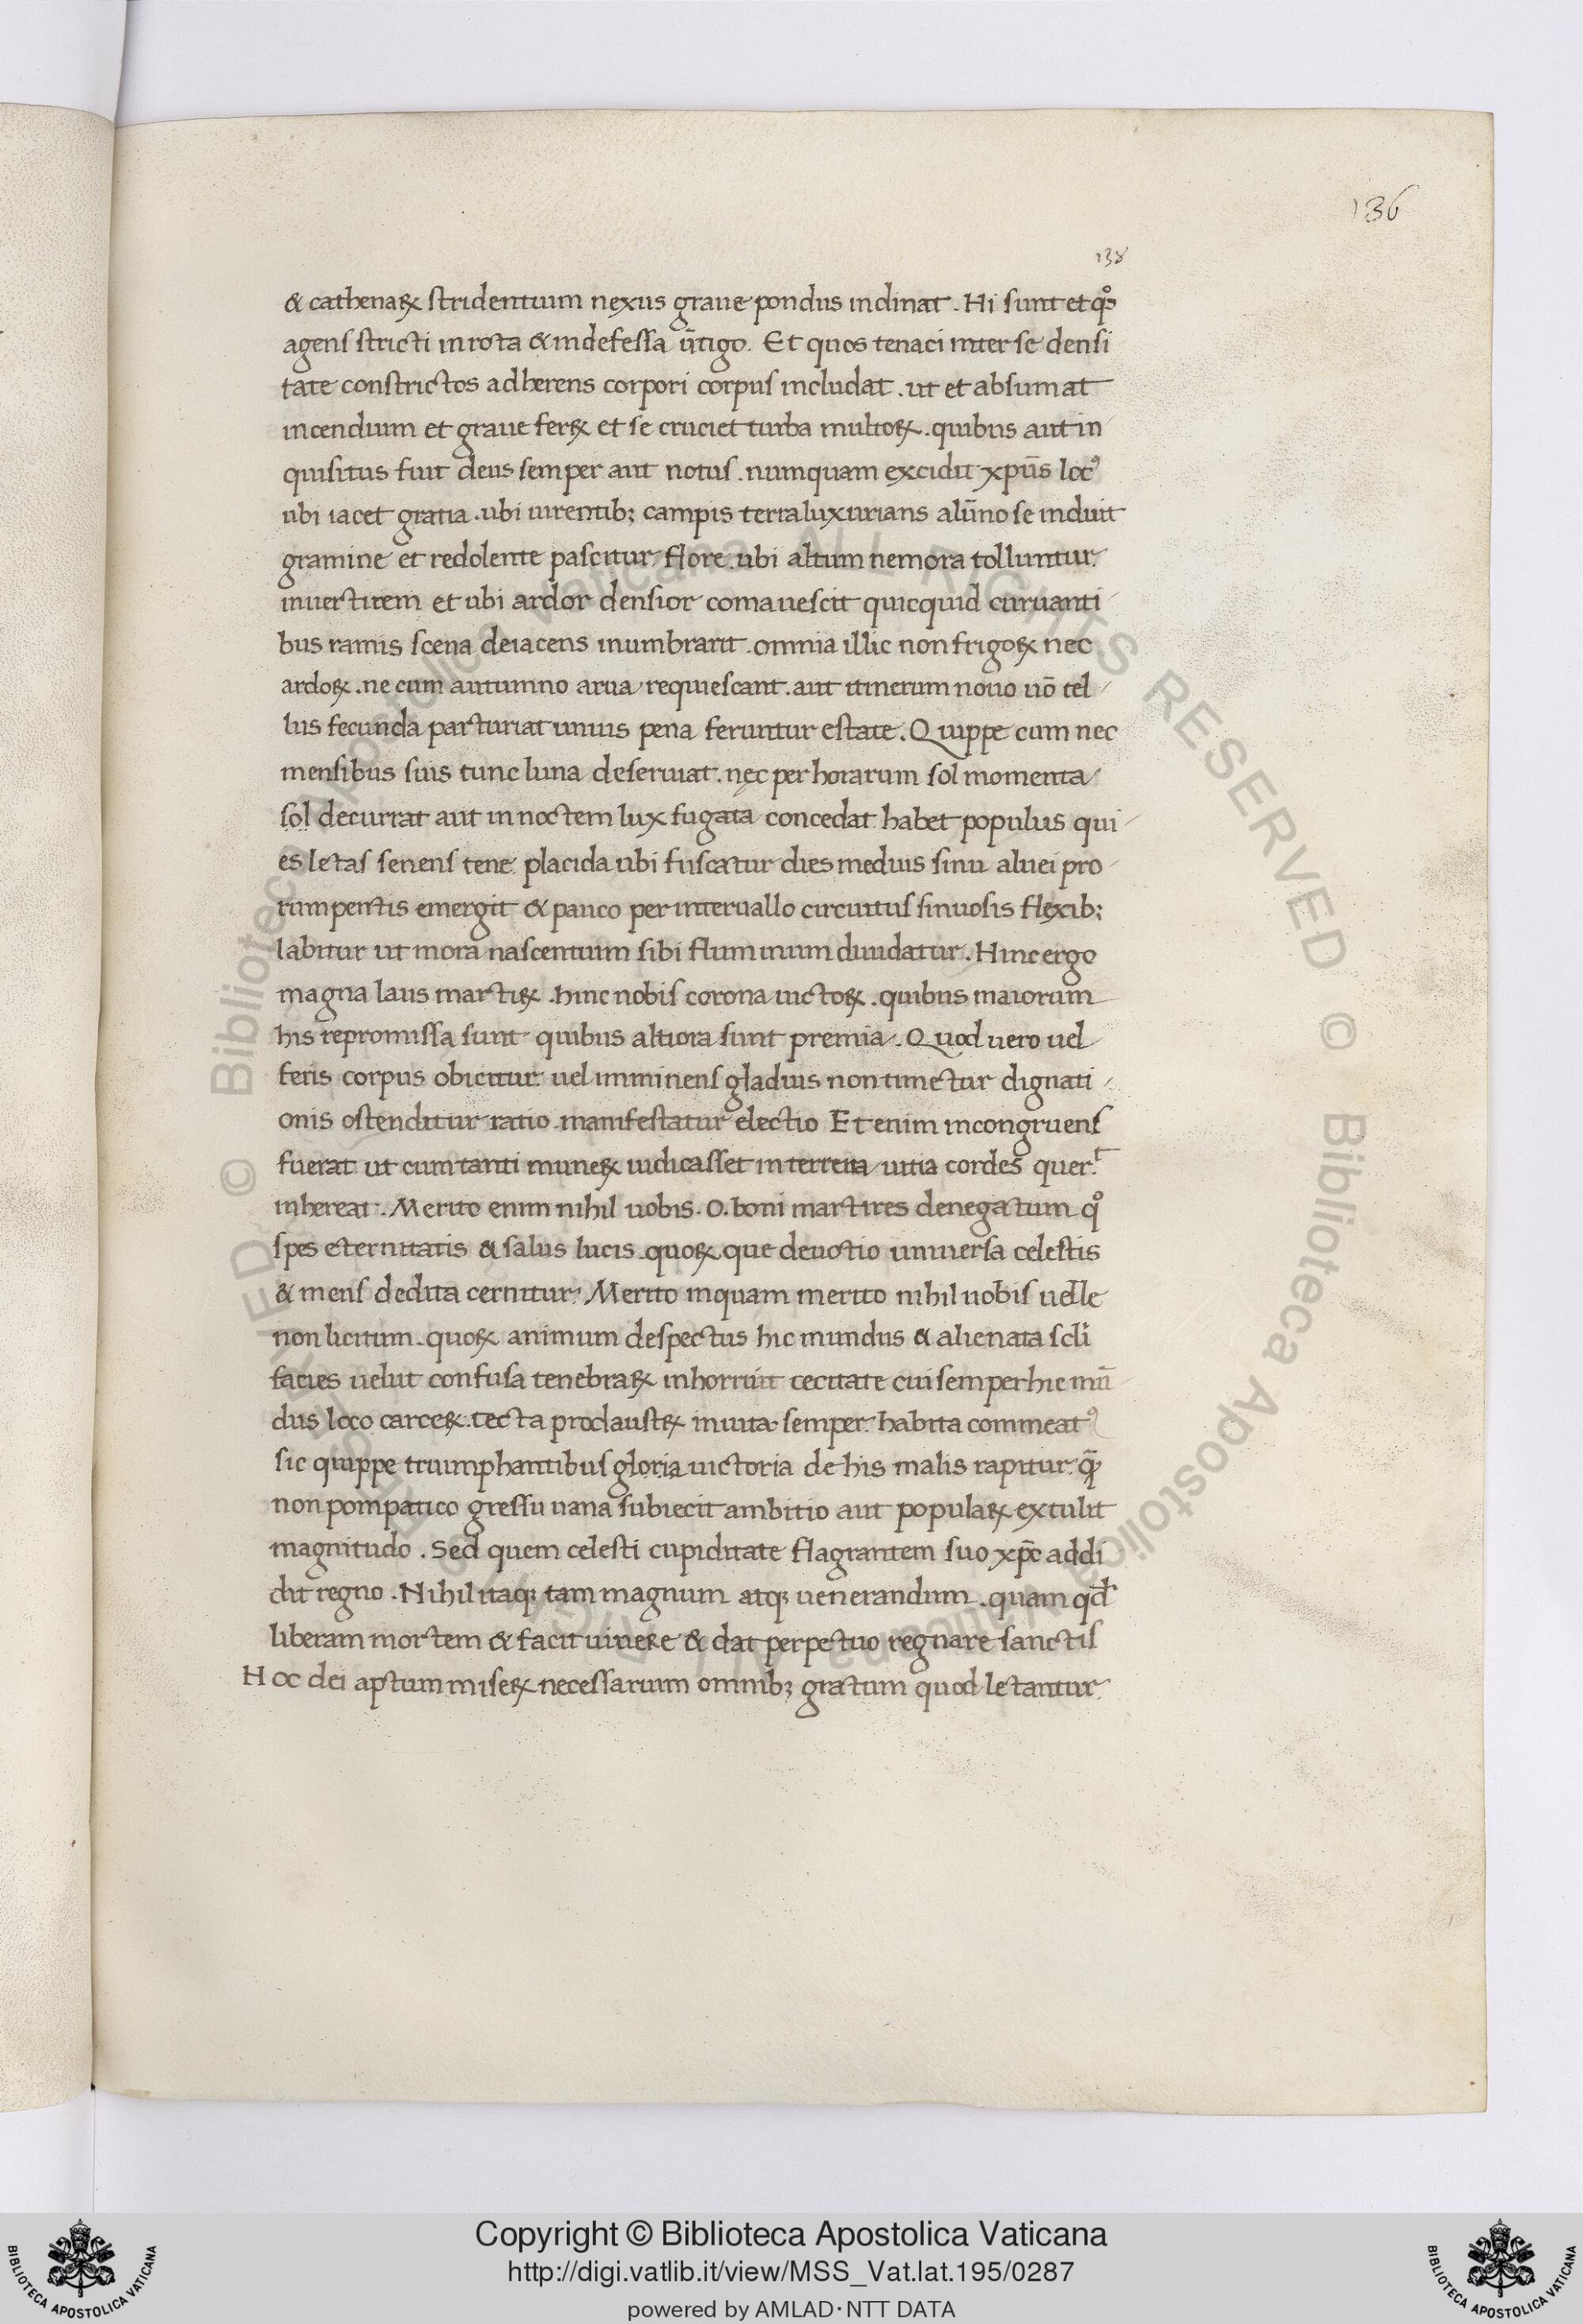 136
138
& cathenaꝝ stridentium nexus graue pondus inclinat . Hi sunt et q̊s
agens stricti in rota & indefessa ūtigo . Et quos tenaci inter se densi
tate constrictos adherens corpori corpus includat . ut et absumat
incendium et graue ferꝝ et se cruciet turba multoꝝ . quibus aut in
quisitus fuit deus semper aut notus . numquam excidit xpūs locꝰ
ubi iacet gratia . ubi uirentib; campis terra luxurians alūno se induit
gramine et redolente pascitur flore . ubi altum nemora tolluntur
inuertirem et ubi ardor densior coma uescit quicquid curuanti
bus ramis scena deiacens inumbrarit . omnia illic non frigoꝝ nec
ardoꝝ . ne cum autumno arua requiescant . aut itinerum nouo uō tel
lus fecunda parturiat unius pena feruntur estate . Quippe cum nec
mensibus suis tunc luna deseruiat . nęc per horarum sol momenta
sol decurrat aut in noctem lux fugata concedat habet populus qui
es letas senens tene placida ubi fuscatur dies medius sinu aluei pro
rumpentis emergit & pauco per interuallo circuitus sinuosis flexib;
labitur ut mora nascentium sibi fluminum diuidatur . Hinc ergo
magna laus martiꝝ . hinc nobis corona uictoꝝ . quibus maiorum
his repromissa sunt quibus altiora sunt premia . Quod uero uel
feris corpus obicitur uel imminens gladius non timetur dignati
onis ostenditur ratio manifestatur electio Et enim incongruens
fuerat ut cum tanti muneꝝ iudicasset interrita uitia cordes
inhereat . Merito enim nihil uobis . O . boni martires denegatum q̊
spes eternitatis & salus lucis . quoꝝ que deuotio uniuersa celestis
& mens dedita cernitur . Merito inquam merito nihil uobis uelle
non licitum . quoꝝ animum despectus hic mundus & alienata scli
facies uelut confusa tenebraꝝ inhorruit cecitate cui semper hic mū
dus loco carceꝝ . tecta proclaustꝝ inuita semper habita commeatꝰ
sic quippe triumphantibus gloria uictoria de his malis rapitur
non pompatico gressu uana subiecit ambitio aut populaꝝ extulit
magnitudo . Sed quem celesti cupiditate flagrantem suo xp̄c addi
dit regno . Nihil itaq; tam magnum atq; uenerandum . quam qd̄
liberam mortem & facit uiuere & dat perpetuo regnare sanctis
Hoc dei aptum miseꝝ necessarium omnib; gratum quod letantur
© Biblioteca Apostolica Vaticana ALL RIGHTS RESERVED © Biblioteca Apostolica Vaticana ALL RIGHTS RESERVED
BIBLIOTECA APOSTOLICA VATICANA
Copyright © Biblioteca Apostolica Vaticana
http://digi.vatlib.it/view/MSS_Vat.lat.195/0287
powered by AMLAD·NTT DATA
BIBLIOTECA APOSTOLICA VATICANA